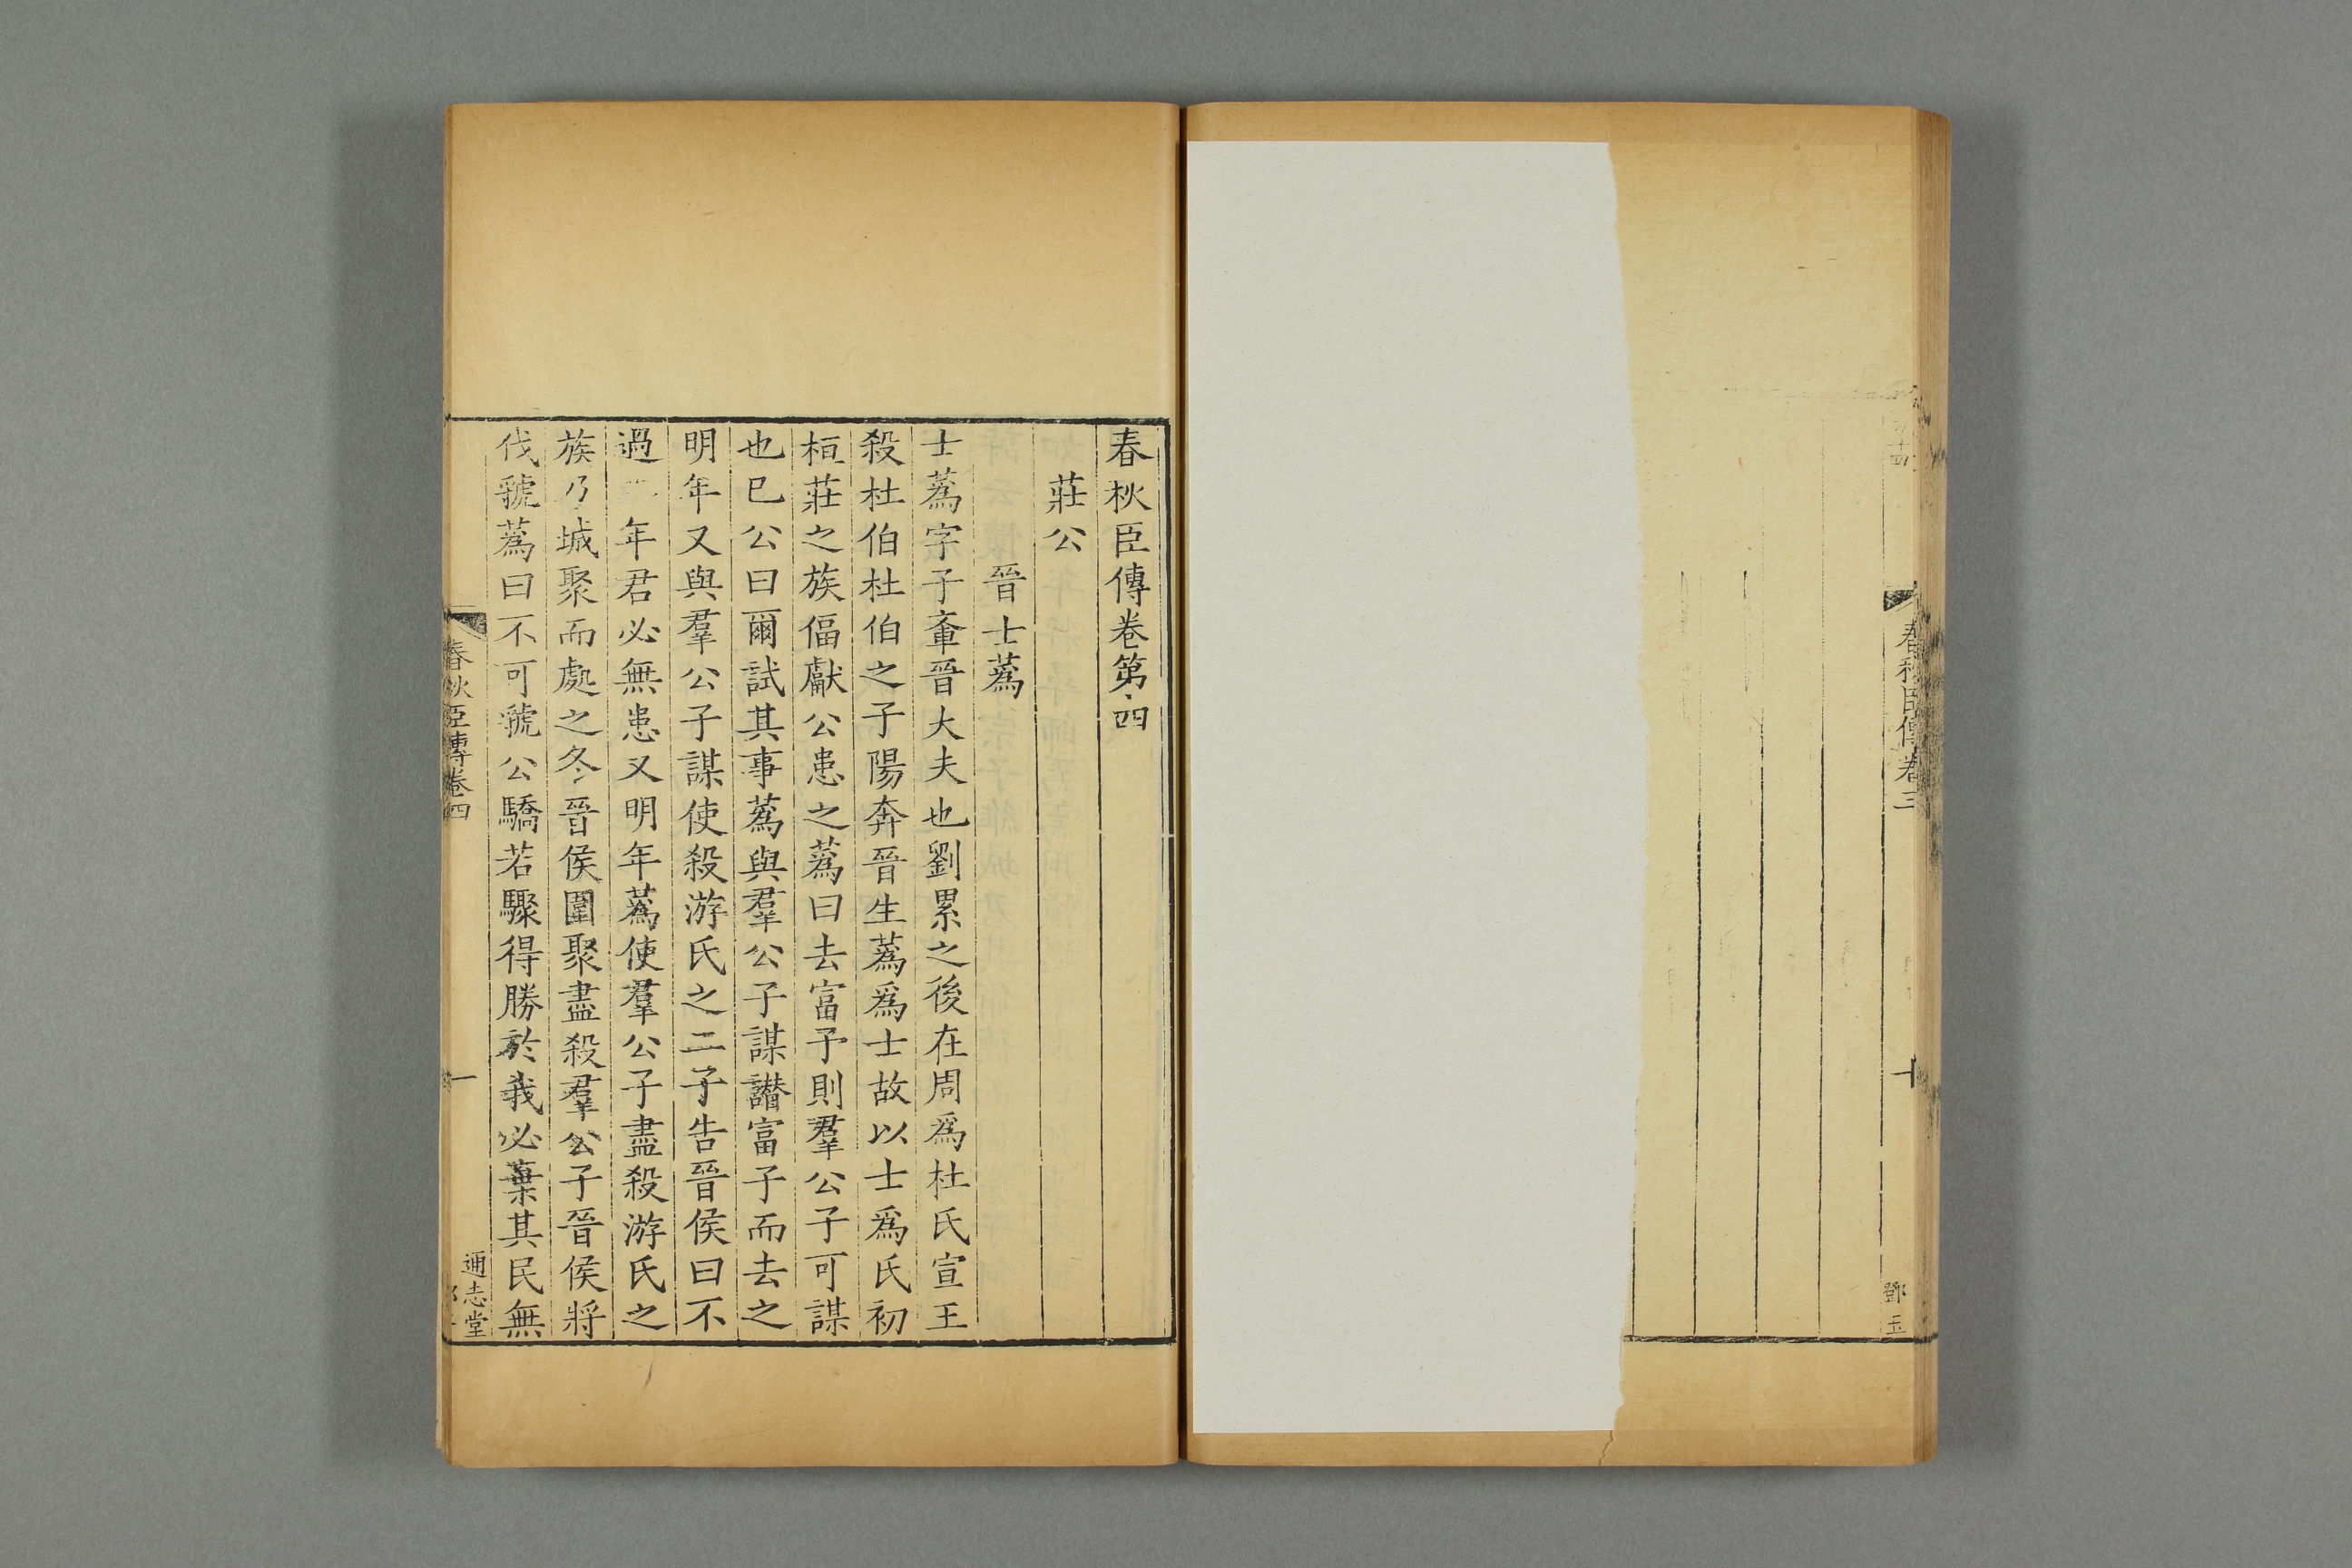 春秋臣傳卷三
十
鄧玉
春秋臣傳卷第四
莊公
晉士蔿
士蔿字子輿晉大夫也劉累之後在周爲杜氏宣王
殺杜伯杜伯之子隰奔晉生蔿爲士故以士爲氏初
桓莊之族偪獻公患之蔿曰去富子則羣公子可謀
也已公曰爾試其事蔿與羣公子謀譖富子而去之
明年又與羣公子謀使殺游氏之二子告晉侯曰不
過 年君必無患又明年蔿使羣公子盡殺游氏之
族乃城聚而處之冬晉侯圍聚盡殺羣公子晉侯將
伐虢蔿曰不可虢公驕若驟得勝於我必棄其民無
春秋臣傳卷四
一
通志堂